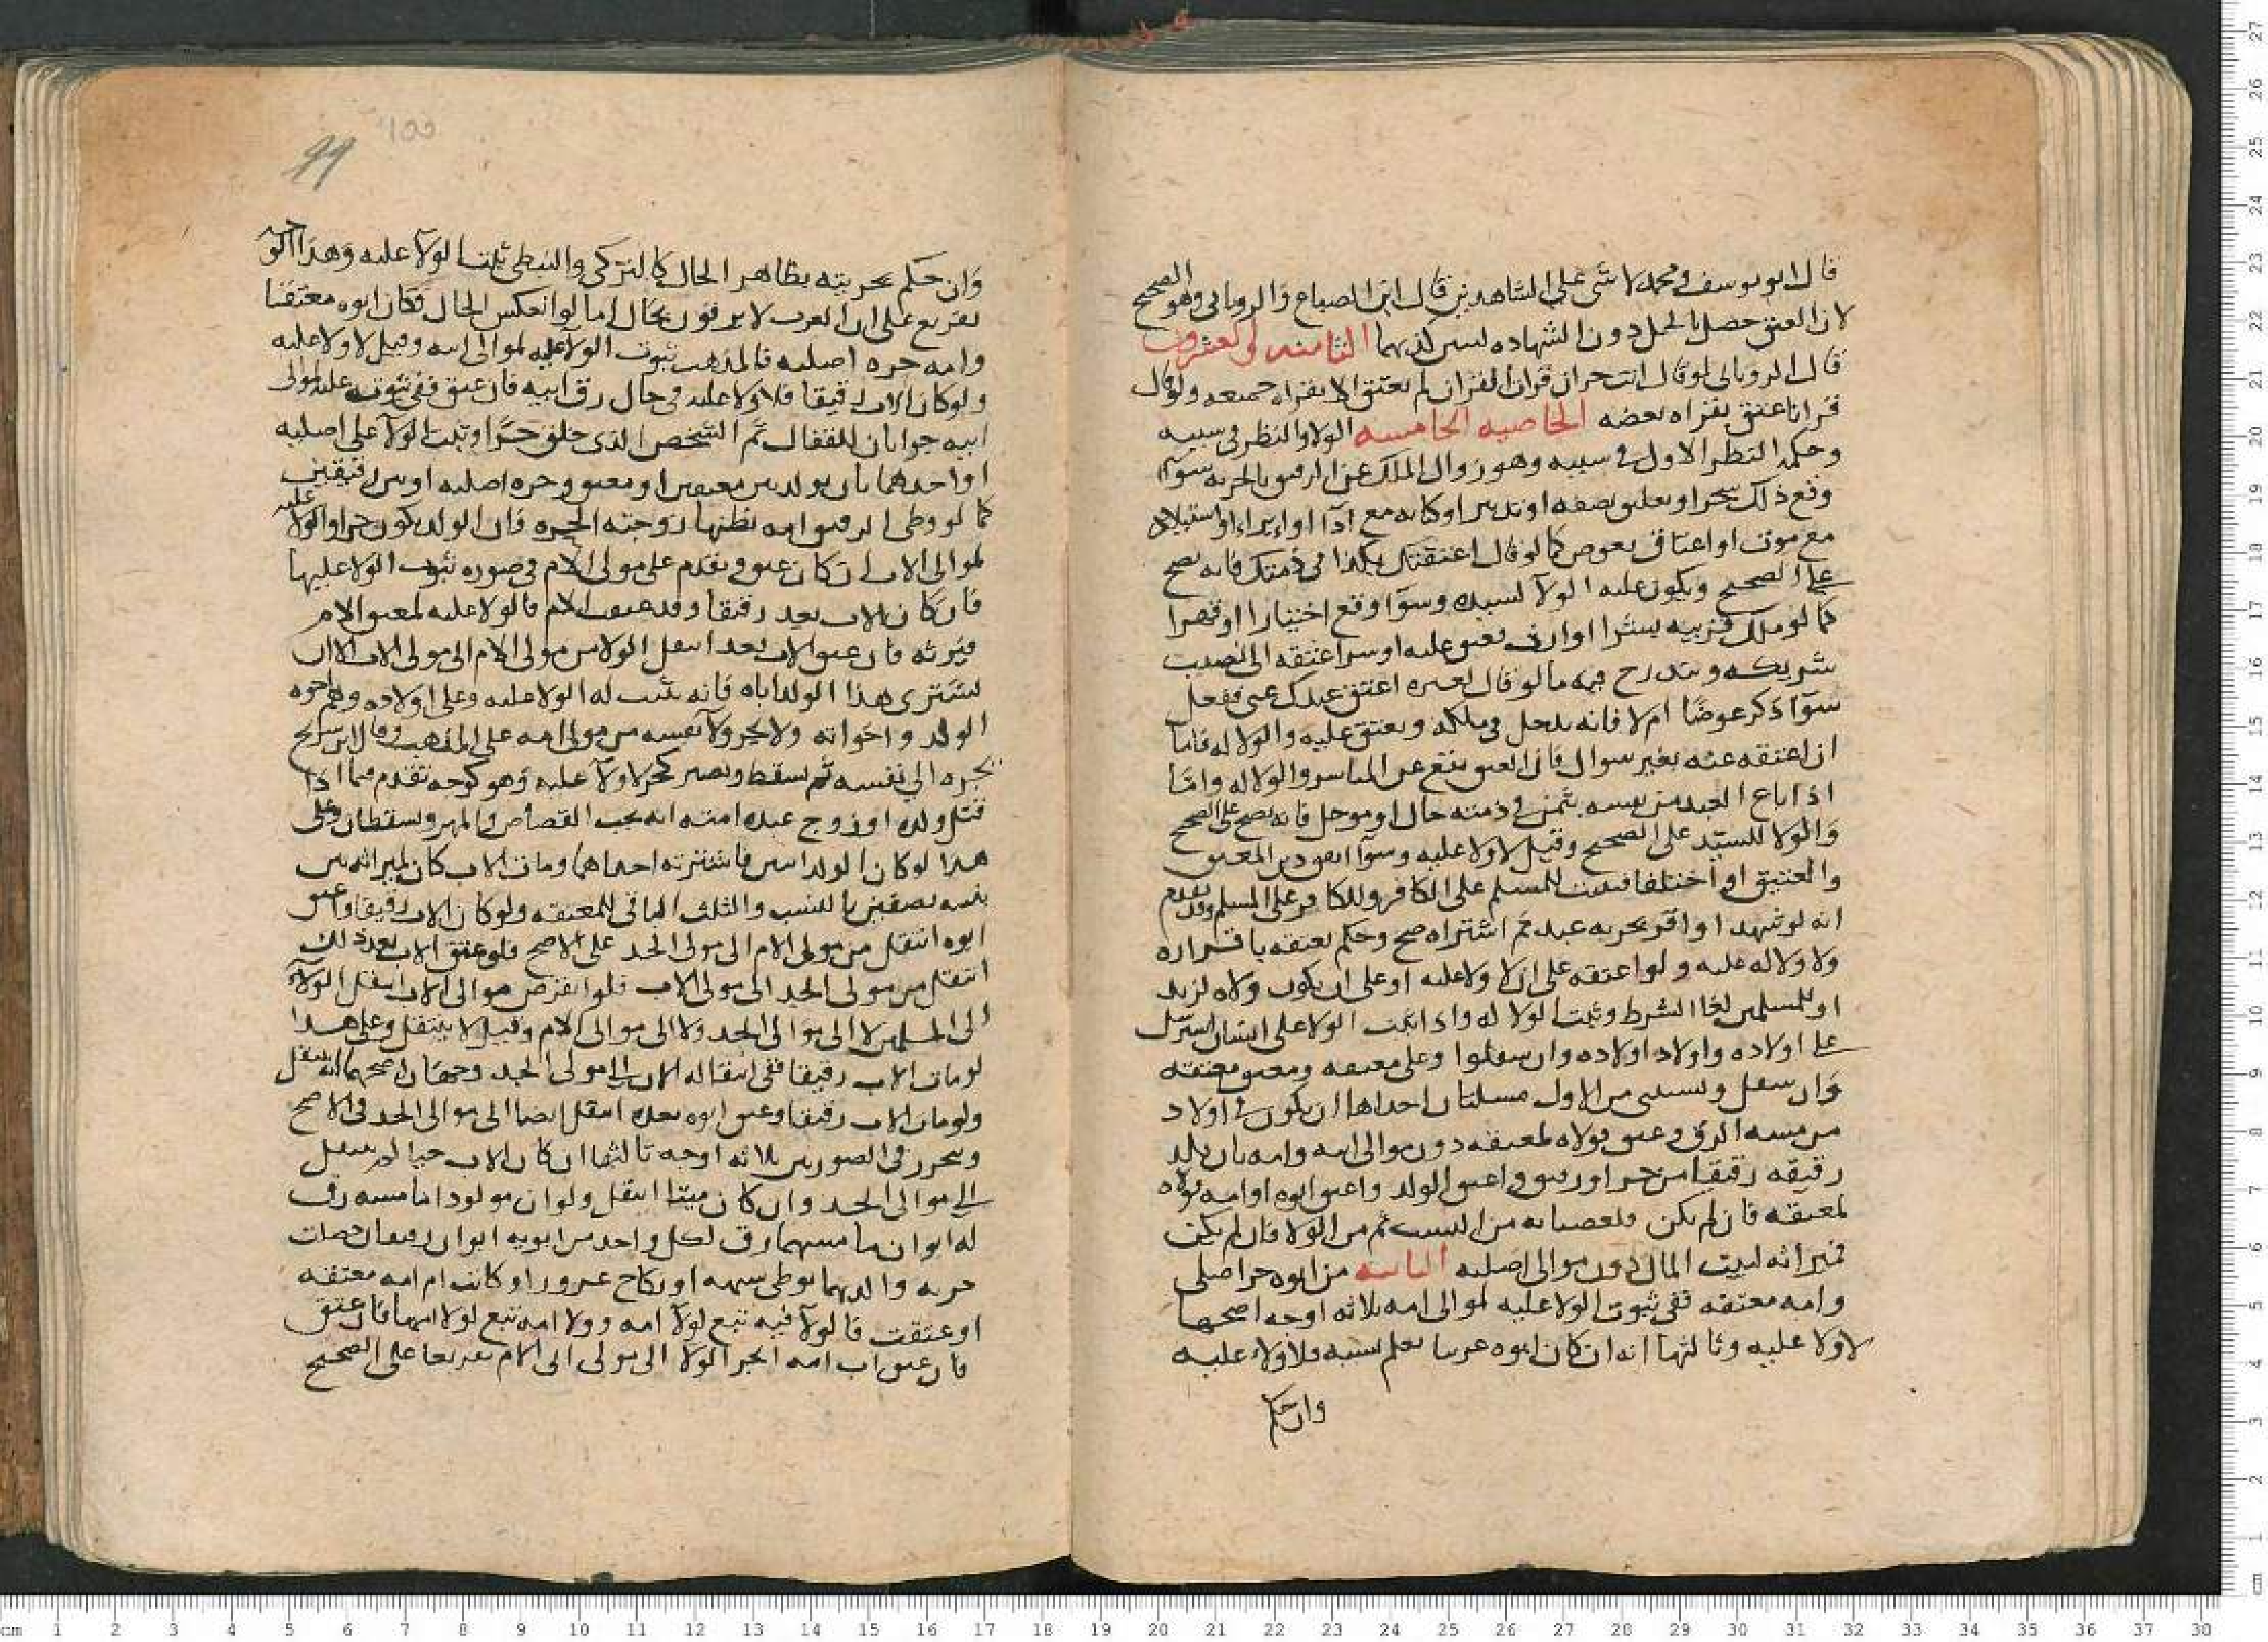 قال ابو يوسف ومحمد لا شي على الشاهدين قال ابن الصباغ والروياني وهو الصحيح
لان العتق حصل بالحل دون الشهاده لسس كذبهما الثامنه والعشرون
قال الروياني لو قال انت حر ان قرات القران لم يعتق الا بقراه جميعه ولو قال
قرانا عتق بقراه بعضه الخاصيه الخامسه الولا والنظر في سببه
وحكمه النظر الاول في سببه وهو زوال الملك عن الرقيق بالحريه سوا
وقع ذلك منجزا او بعليق بصفه او تدبير او كتابه مع ادا او ابراء او استيلاد
مع موت او اعتاق بعوض كما لو قال اعتقتك بكذا في ذمتك فانه يصح
على الصحيح ويكون عليه الولا لسيده وسوا وقع اختيارا او قهرا
كما لو ملك قريبه بشرا او ارث فعتق عليه او سرا عتقه الى نصيب
شريكه ويندرج فيه ما لو قال لغيره اعتق عبدك عني ففعل
سوا ذكر عوضا ام لا فانه يدخل في ملكه ويعتق عليه والولا له فاما
ان اعتقه عنه بغير سوال فان العتق يقع عن المباشر والولا له واما
اذا باع العبد من نفسه بثمن في ذمته حال او موجل فانه يصح على الصحيح
والولا للسيد على الصحيح وقيل لا ولا عليه وسوا اتفق دين المعتق
والعتيق او اختلفا فيثبت للمسلم على الكافر وللكافر على المسلم وقد تقدم
انه لو شهد او اقر بحريه عبد ثم اشتراه صح وحكم بعتقه باقراره
ولا ولا له عليه ولو اعتقه على ان لا ولا عليه او على ان يكون ولاه لزيد
او للمسلمين لغا الشرط وثبت الولا له واذا ثبت الولا على انسان استرسل
على اولاده واولاد اولاده وان سفلوا وعلى معتقه ومعتق معتقه
وان سفل ويستثنى من الاول مسلتان احداها ان يكون في اولاد
من مسه الرق وعتق فولاه لمعتقه دون موالي ابيه وامه بان تلد
رقيقه رقيقا من حر او رقيق واعتق الولد واعتق ابوه او امه فولاه
لمعتقه فان لم يكن فلعصباته من النسب ثم من الولا فان لم يكن
فميراثه لبيت المال دون موالي اصليه الثانيه من ابوه حر اصلي
وامه معتقه ففي ثبوت الولا عليه لموالي امه ثلاثه اوجه اصحها
لا ولا عليه وثالثها انه ان كان ابوه عربيا يعلم نسبه فلا ولاء عليه
وان حكم
99
100
وان حكم بحريته بظاهر الحال كالتركي والنبطي ثبت الولا عليه وهذا الوجه
تفريع على ان العرب لا يرقون بحال اما لو انعكس الحال فكان ابوه معتقا
وامه حره اصليه فالمذهب ثبوت الولا عليه لموالي ابيه وقيل لا ولا عليه
ولو كان الاب رقيقا فلا ولا عليه في حال رق ابيه فان عتق ففي ثبوته عليه لموالي
ابيه جوابان للقفال ثم الشخص الذي خلق حرا وثبت الولا على اصليه
او احدهما بان يولد بين معتقين او معتق وحره اصليه او بين رقيقين
كما لو وطى الرقيق امه يظنها زوجته الحره فان الولد يكون حرا والولا عليه
لموالي الاب ان كان عتق ويقدم على مولى الام في صوره ثبوت الولا عليها
فان كان الاب بعد رقيقا وقد عتقت الام فالولا عليه لمعتق الام
فيرثه فان عتق الاب بعد انتقل الولا من مولى الام الى مولى الاب الا ان
يشتري هذا الولد اباه فانه يثبت له الولا عليه وعلى اولاده وهم اخوه
الولد واخواته ولا يجر ولا نفسه من مولى امه على المذهب وقال ابن سريج
يجره الى نفسه ثم يسقط ويصير كحر لا ولا عليه وهو كوجه تقدم فيما اذا
قتل ولده او زوج عبده امته انه يجب القصاص والمهر ويسقطان وعلى
هذا لو كان الولد اسن فاشترته احداهما ومات الاب كان الميراثه بين
بنتيه نصفين بالنسب والثلث الباقي للمعتقه ولو كان الاب رقيقا واعتق
ابوه انتقل من مولى الام الى مولى الجد على الاصح فلو عتق الاب بعد ذلك
انتقل من مولى الجد الى مولى الاب فلو انقرض موالي الاب انتقل الولا
الى المسلمين لا الى موالي الجد ولا الى موالي الام وقيل لا ينتقل وعلى هذا
لو مات الاب رقيقا ففي انتقاله الان الى مولى الجد وجهان اصحهما انه ينتقل
ولو مات الاب رقيقا وعتق ابوه بعده انتقل ايضا الى موالي الجد في الاصح
ويحرر في الصورتين ثلاثه اوجه ثالثها ان كان الاب حيا لم ينتقل
الى موالي الجد وان كان ميتا انتقل ولو ان مولودا ما مسه رق
له ابوان ما مسهما رق لكل واحد من ابويه ابوان رقيقان حصلت
حريه والديهما بوطى شبهه او نكاح غرور او كانت ام امه معتقه
او عتقت فالولا فيه تبع لولا امه وولا امه تبع لولا امها فان عتق
فان عتق اب امه انجر الولا الى مولى اب الام تفريعا على الصحيح